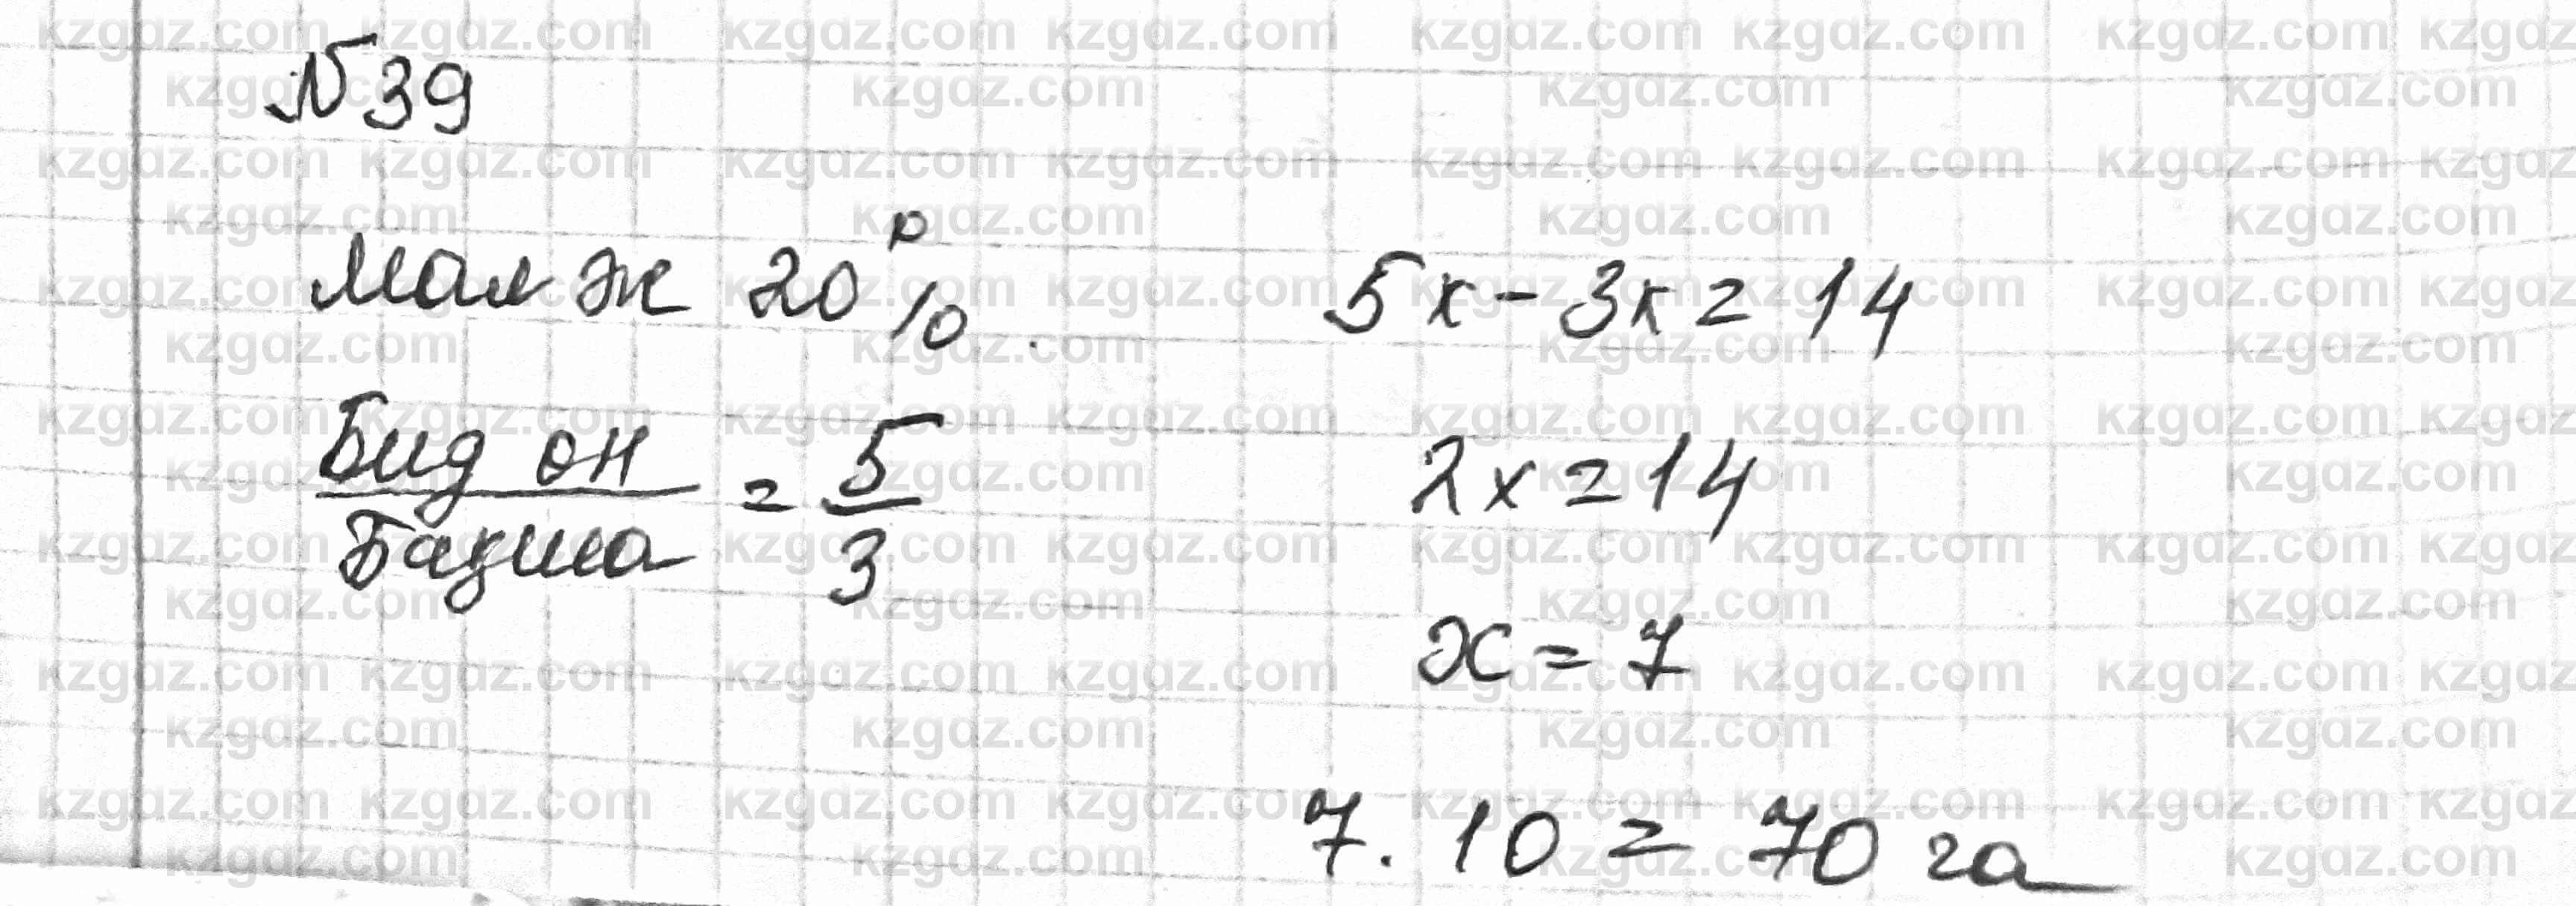 №39
Мал ж 20%
Бид өн
Бақша = 5/3
5x - 3x = 14
2x = 14
x = 7
7 · 10 = 70 га
kzgdz.com